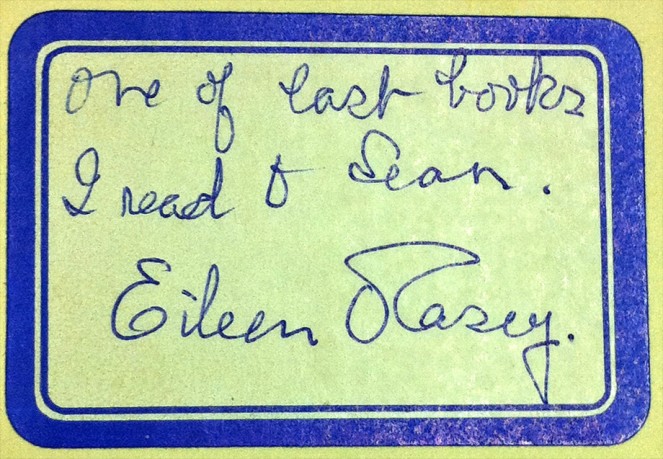 One of last books
I read to Sean.
Eileen O'Casey.